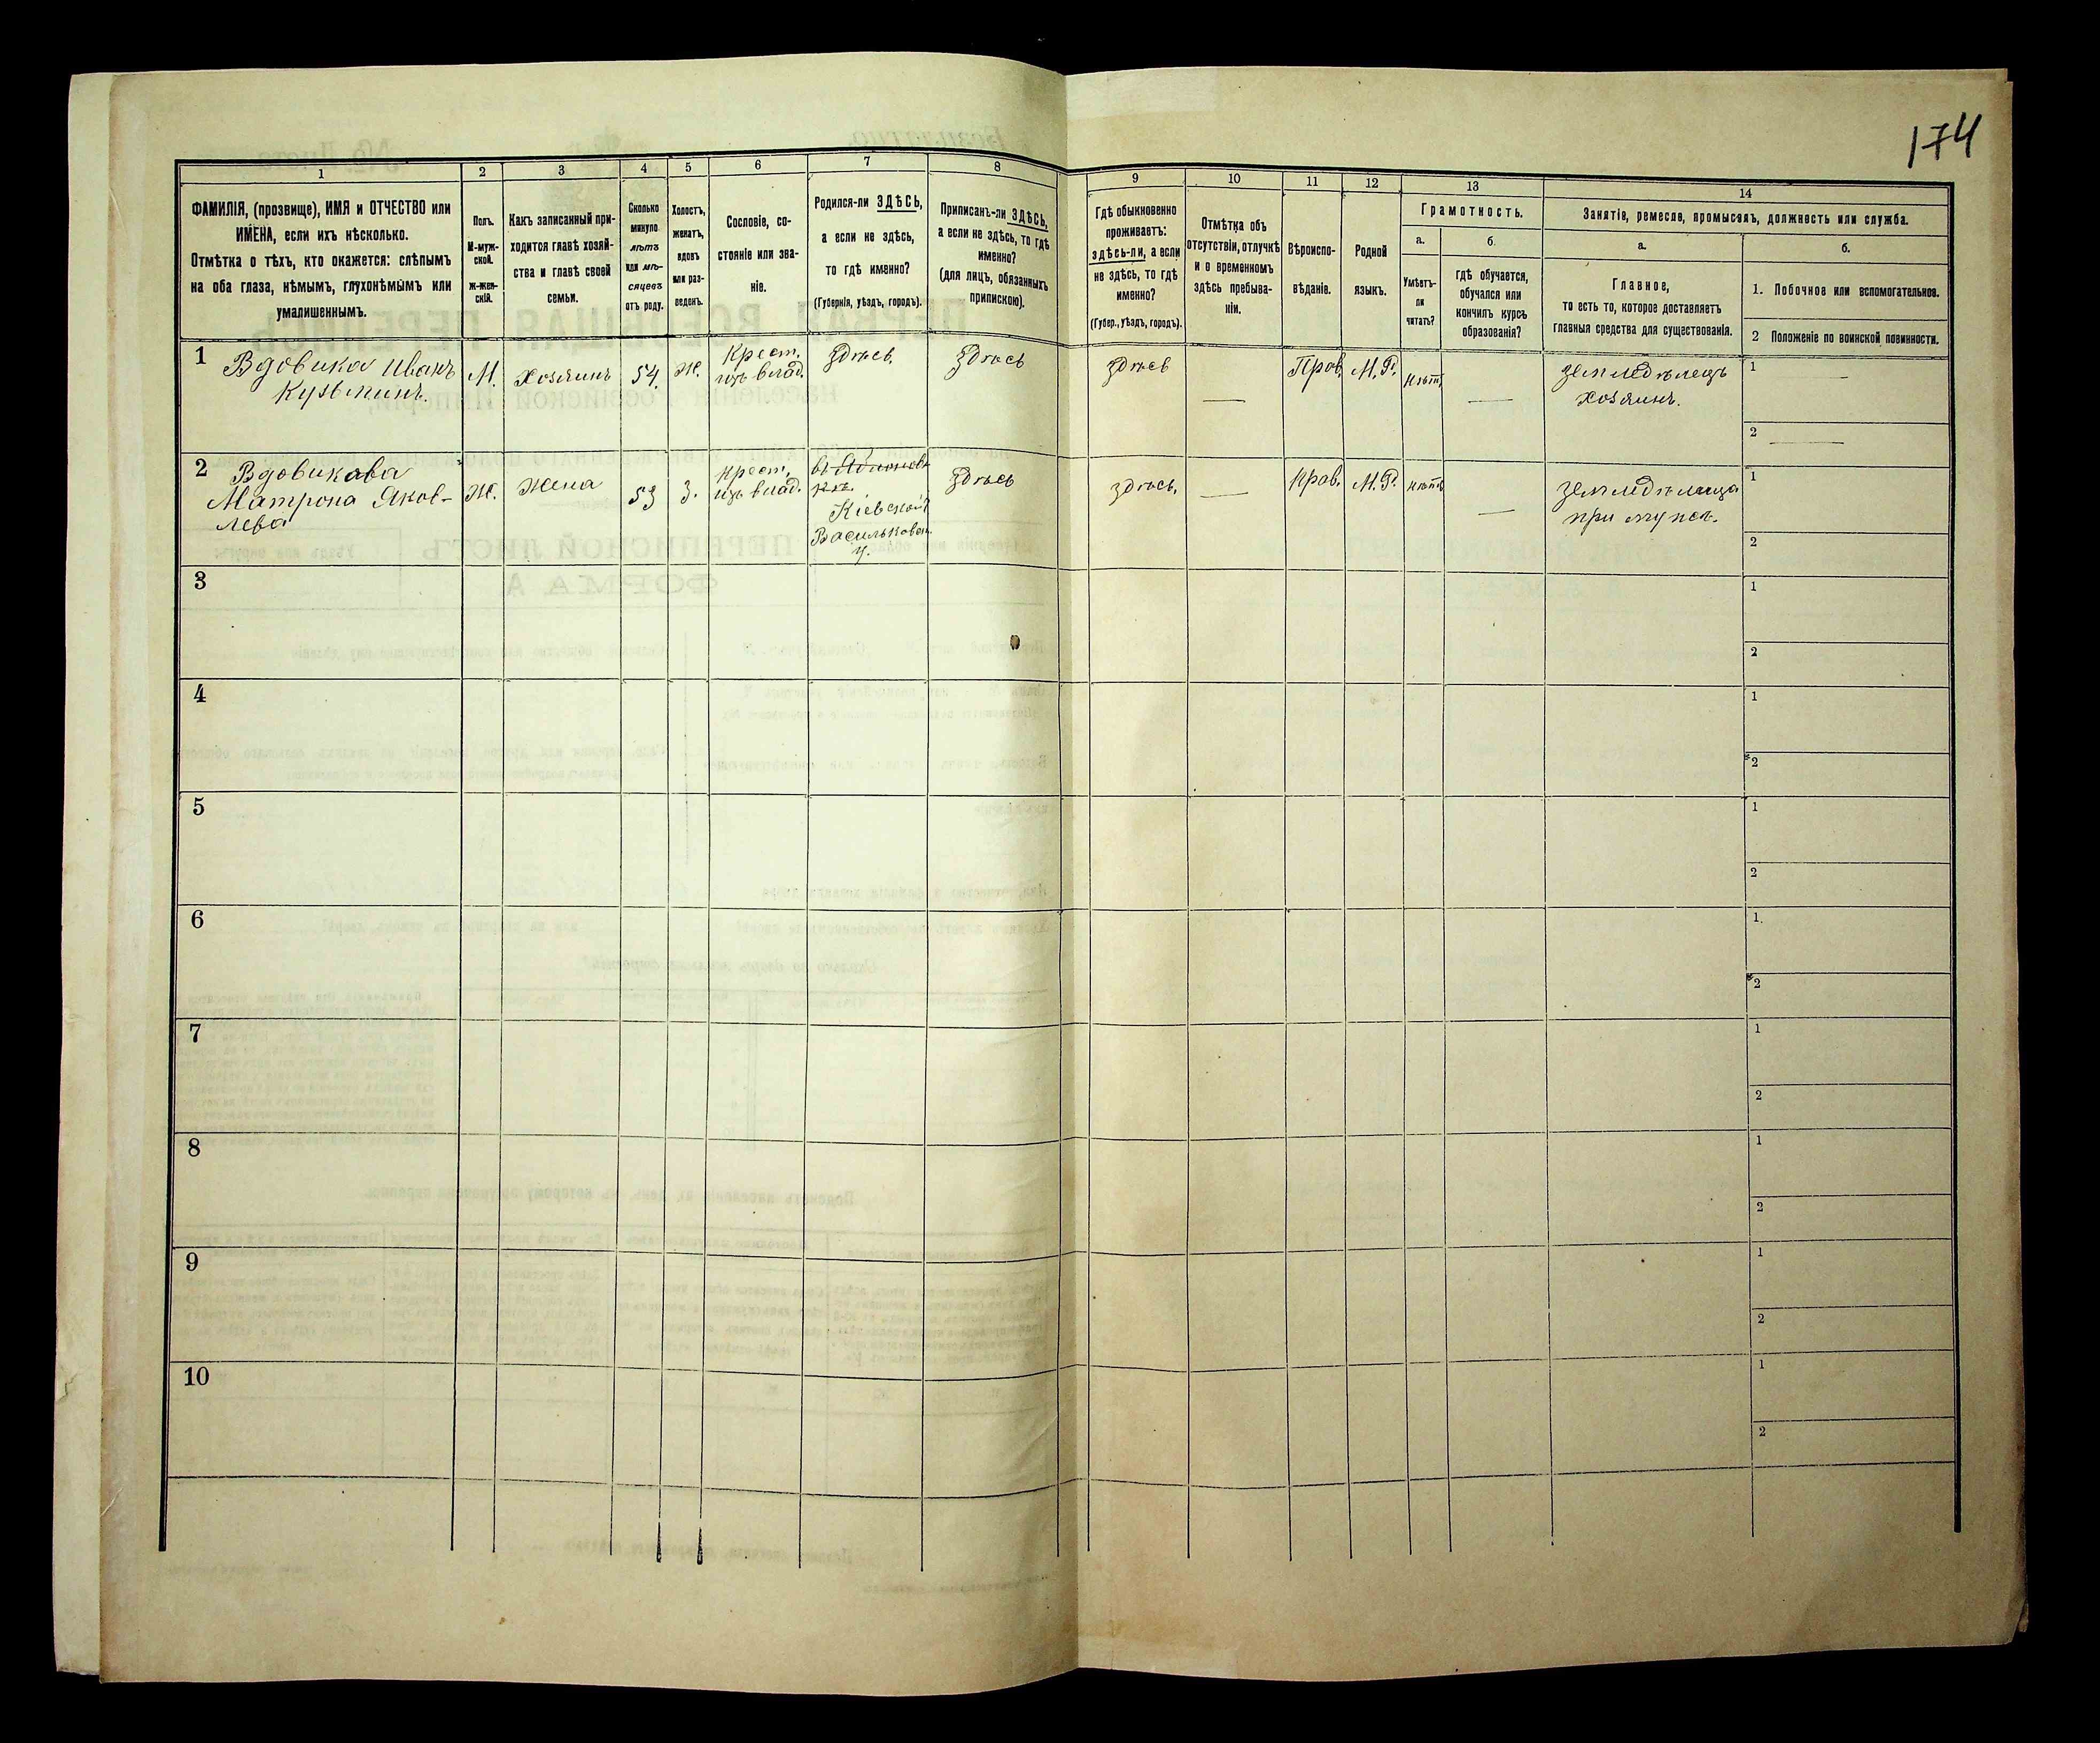 174
1
2
3
4
5
6
7
8
9
10
11
12
13
14
ФАМИЛІЯ, (прозвище), ИМЯ и ОТЧЕСТВО или
ИМЕНА, если ихъ нѣсколько.
Отмѣтка о тѣхъ, кто окажется: слѣпымъ
на оба глаза, нѣмымъ, глухонѣмымъ или
умалишеннымъ.
Полъ.
М-муж-
ской.
ж-жен-
скій.
Какъ записанный при-
ходится главѣ хозяй-
ства и главѣ своей
семьи.
Сколько
минуло
лѣтъ
или мѣ-
сяцевъ
отъ роду.
Холостъ,
женатъ,
вдовъ
или раз-
веденъ.
Сословіе, со-
стояніе или зва-
ніе.
Родился-ли ЗДѢСЬ,
а если не здѣсь,
то гдѣ именно?
(Губернія, уѣздъ, городъ).
Приписанъ-ли ЗДѢСЬ,
а если не здѣсь, то гдѣ
именно?
(для лицъ, обязанныхъ
припискою).
Гдѣ обыкновенно
проживаетъ:
здѣсь-ли, а если
не здѣсь, то гдѣ
именно?
(Губер., уѣздъ, городъ).
Отмѣтка объ
отсутствіи, отлучкѣ
и о временномъ
здѣсь пребыва-
ніи.
Вѣроиспо-
вѣданіе.
Родной
языкъ.
Грамотность.
а.
Умѣетъ-
ли
читать?
б.
гдѣ обучается,
обучался или
кончилъ курсъ
образованія?
Занятіе, ремесло, промыселъ, должность или служба.
а.
Главное,
то есть то, которое доставляетъ
главныя средства для существованія.
б.
1. Побочное или вспомогательное.
2 Положеніе по воинской повинности.
1
Вдовика Иванъ
Кузьминъ.
М.
Хозяинъ
54
Ж.
Крест.
изъ влад.
Здѣсь
Здѣсь
здѣсь
—
Прав.
М.Р.
нѣтъ
—
земледѣлецъ
хозяинъ.
1 —
2 —
2
Вдовикава
Матрона Яков-
лева
Ж.
жена
53
З.
крест,
изъ влад.
Кіевской
Васильковск.
у.
Здѣсь
здѣсь.
—
Прав.
М.Р.
нѣтъ
—
земледѣлица
при мужѣ.
1
2
3
1
2
4
1
2
5
1
2
6
1.
2
7
1
2
8
1
2
9
1
2
10
1
2